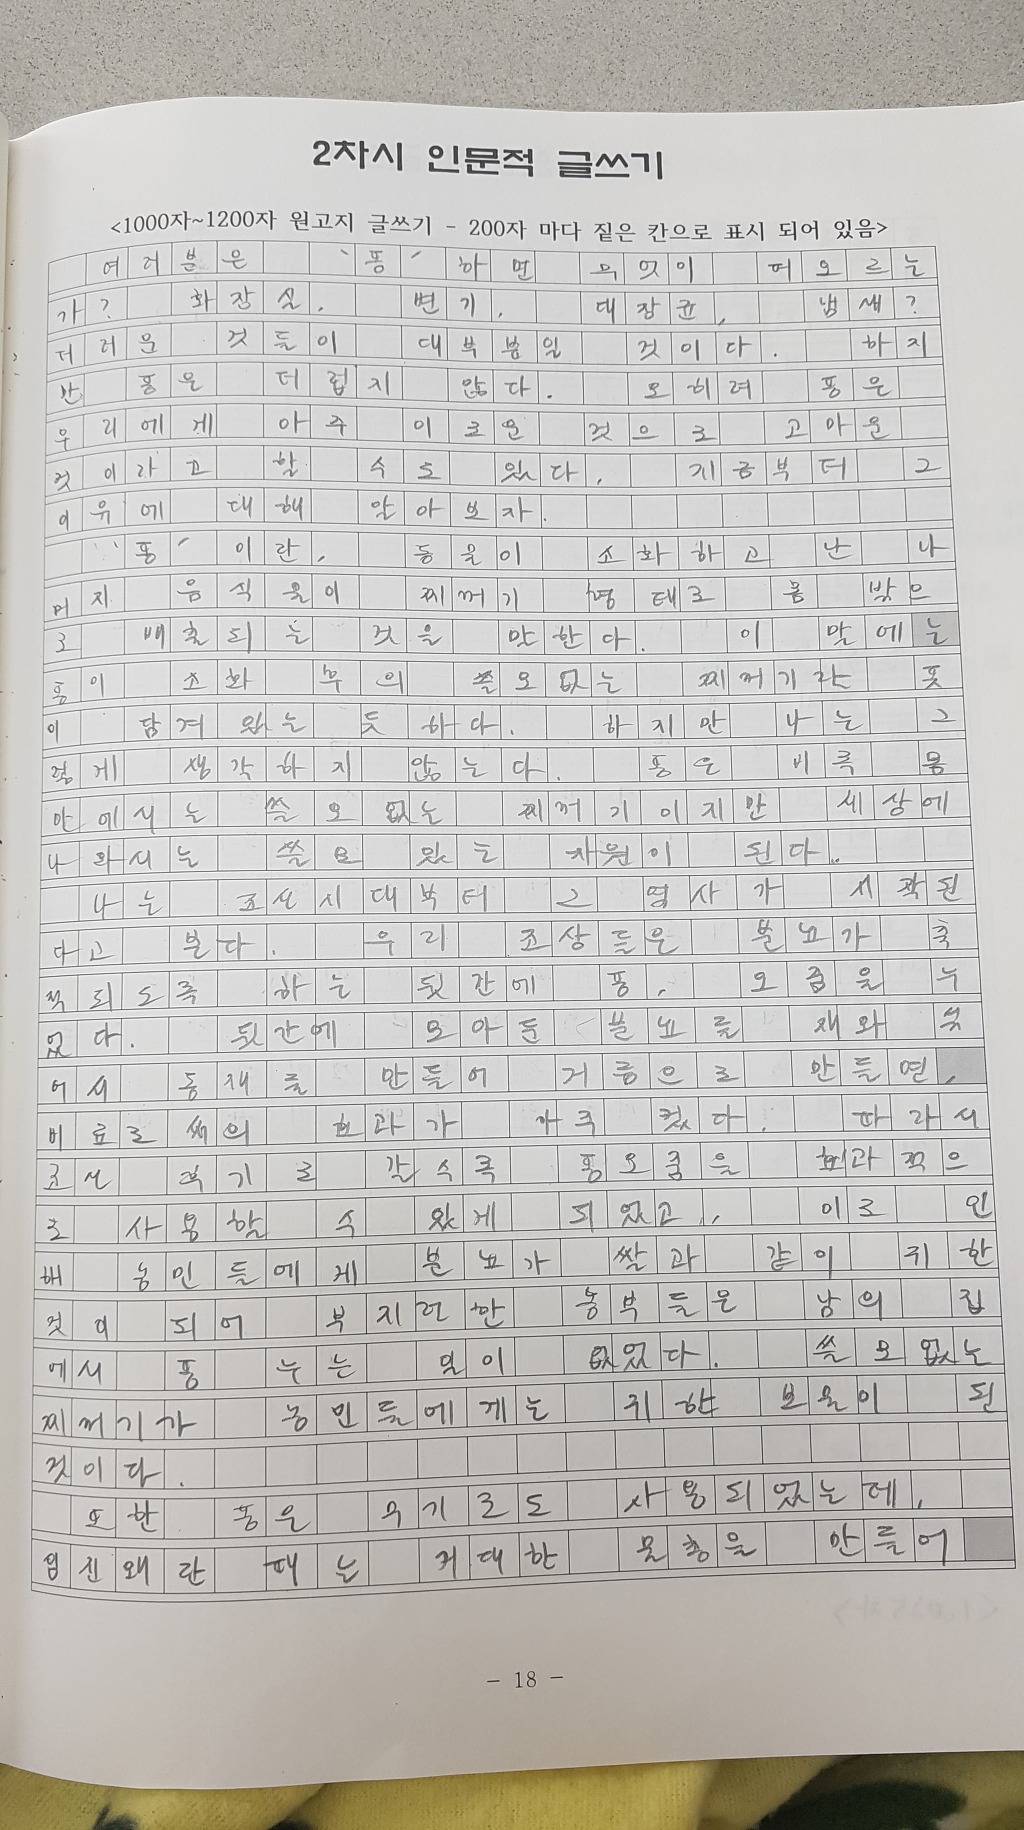 2차시 인문적 글쓰기
<1000자~1200자 원고지 글쓰기 - 200자 마다 짙은 칸으로 표시 되어 있음>
여러분은 '똥' 하면 무엇이 떠오르는
가? 화장실, 변기, 대장균, 냄새?
더러운 것들이 대부분일 것이다. 하지
만 똥은 더럽지 않다. 오히려 똥은
우리에게 아주 이로운 것으로 고마운
것이라고 할 수도 있다. 지금부터 그
이유에 대해 알아보자.
'똥' 이란, 동물이 소화하고 난 나
머지 음식물이 찌꺼기 형태로 몸 밖으
로 배출되는 것을 말한다. 이 말에는
똥이 소화 후의 쓸모없는 찌꺼기라는 뜻
이 담겨 있는 듯 하다. 하지만 나는 그
렇게 생각하지 않는다. 똥은 비록 몸
안에서는 쓸모 없는 찌꺼기이지만 세상에
나와서는 쓸모 있는 자원이 된다.
나는 조선시대부터 그 역사가 시작된
다고 본다. 우리 조상들은 분뇨가 축
적되도록 하는 뒷간에 똥, 오줌을 누
었다. 뒷간에 모아둔 분뇨를 재와 섞
어서 똥재를 만들어 거름으로 만들면,
비료로써의 효과가 아주 컸다. 따라서
조선 후기로 갈수록 똥오줌을 효과적으
로 사용할 수 있게 되었고, 이로 인
해 농민들에게 분뇨가 쌀과 같이 귀한
것이 되어 부지런한 농부들은 남의 집
에서 똥 누는 일이 없었다. 쓸모없는
찌꺼기가 농민들에게는 귀한 보물이 된
것이다.
또한 똥은 무기로도 사용되었는데,
임진왜란 때는 커대한 물총을 만들어
- 18 -